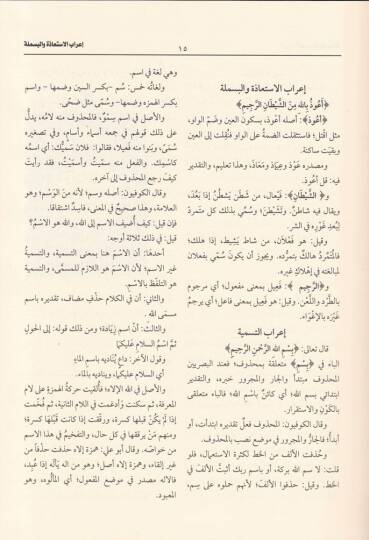 إعراب الاستعاذة والبسملة
١٥
إعراب الاستعاذة والبسملة
﴿أَعُوذُ بِاللهِ مِنَ الشَّيْطَانِ الرَّجِيمِ﴾
﴿أعُوذ﴾: أصله أعوذ، بسكون العين وضم الواو،
مثل اقتل؛ فاستثقلت الضمة على الواو فنُقِلت إلى العين
وبقيت ساكنة.
ومصدره عَوْذ وعِياذ ومَعَاذ، وهذا تعليم، والتقدير
فيه: قل أعوذ.
و﴿الشَّيْطَان﴾: فَيْعال، من شَطَن يَشْطُنُ إذا بَعُدَ،
ويقال فيه شاطن، وتَشَيْطَنَ؛ وسُمِّي بذلك كل متمرد
لبُعدِ غَوْرِه في الشر.
وقيل: هو فَعْلان، من شاط يَشِيط، إذا هلك؛
فالمُتَمَرِّدُ هالكٌ بتمرُّده. ويجوز أن يكونَ سُمِّي بفعلان
لمبالغته في إهلاكِ غيره.
و﴿الرَّجِيمِ﴾: فَعِيل بمعنى مفعول؛ أي مرجوم
بالطَّرد واللَّعْن. وقيل: هو فَعِيل بمعنى فاعل؛ أي يرجمُ
غَيْرَه بالإغواء.
إعراب التسمية
قال تعالى: ﴿بِسْمِ اللهِ الرَّحْمٰنِ الرَّحِيمِ﴾
الباء في ﴿بِسْمِ﴾ متعلقة بمحذوف؛ فعند البصريين
المحذوف مبتدأ والجار والمجرور خبره، والتقدير
ابتدائي بسم الله؛ أي كائنٌ باسْمِ الله؛ فالباء متعلقى
بالكَوْنِ والاستقرار.
وقال الكوفيون: المحذوف فعلٌ تقديره ابتدأت، أو
أبدأ؛ فالجارُّ والمجرور في موضع نصب بالمحذوف.
وحُذفت الألف من الخط لكثرة الاستعمال، فلو
قلت: لا سم الله بركة، أو باسم ربك أثبتَّ الألفَ في
الخط. وقيل: حذفوا الألف؛ لأنهم حملوه على سِم،
وهي لغة في اسم.
ولغاتُه خمس: سُم -بكسر السين وضمها- واسم
بكسر الهمزة وضمها- وسُمًى مثل ضحى.
والأصل في اسم سِمْوٌ، فالمحذوف منه لامُه، يدلُّ
على ذلك قولهم في جمعه أسماء وأسام، وفي تصغيره
سُمَيّ، وبَنَوا منه فَعيلا، فقالوا: فلان سَمِيُّك: أي اسمُه
كاسْمِك. والفعل منه سَمَّيتُ وأسْمَيْتُ، فقد رأيتَ
كيفَ رجع المحذوف إلى آخره.
وقال الكوفيون: أصله وسم؛ لأنه من الوَسْم؛ وهو
العلامة، وهذا صحيحٌ في المعنى، فاسدٌ اشتقاقًا.
فإن قيل: كيف أُضيف الاسم إلى الله، والله هو الاسْمُ؟
قيل: في ذلك ثلاثة أوجه:
أحدهَا: أن الاسم هنا بمعنى التسمية، والتسمية
غير الاسم؛ لأن الاسْمَ هو اللازم للمسمَّى، والتسمية
هو التلفّظ بالاسْمِ.
والثاني: أن في الكلام حذْفِ مضاف، تقديره باسم
مسمَّى الله.
والثالث: أنَّ اسم زِيَادة؛ ومن ذلك قوله: إلى الحولِ
ثمَّ اسْمُ السلامِ عَلَيْكما
وقول الآخر: داعٍ يُنَاديه باسمِ الماءِ
أي السلام عليكما، ويناديه بالماء.
والأصل في الله الإلاه؛ فألقِيت حركةُ الهمزةِ على لامِ
المعرفة، ثم سكنت وأدغمت في اللام الثانية، ثم فُخِّمت
إذا لَمْ يكُنْ قبلها كسرة، ورقّقت إذا كانت قبلها كسرة؛
ومنهم مَنْ يرققها في كل حال، والتفخيمُ في هذا الاسم
من خواصِّه. وقال أبو علي: همزة إلاه حذفت حذفًا من
غير إلقاء، وهمزة إلاه أصل؛ وهو من أله يَأْلَهُ إذا عُبِد،
فالإله مصدر في موضع المفعول؛ أي المألوه، وهو
المعبود.